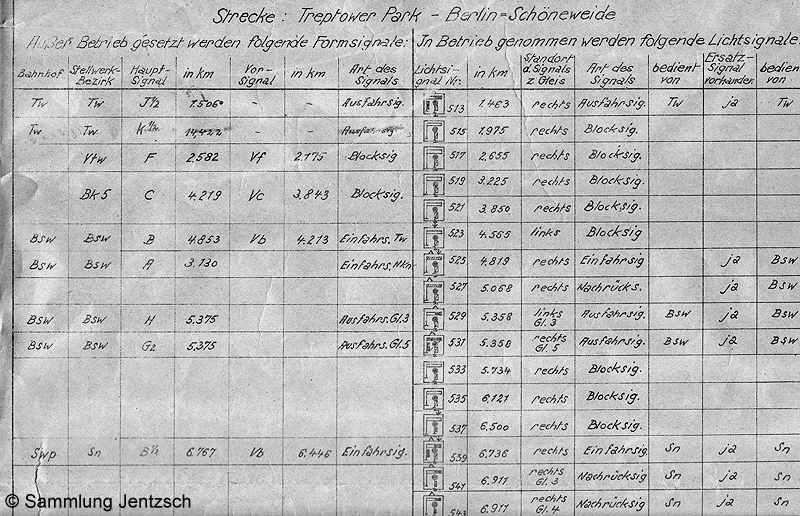 Strecke: Treptower Park - Berlin=Schöneweide
Außer Betrieb gesetzt werden folgende Formsignale: In Betrieb genommen werden folgende Lichtsignale:
Bahnhof Stellwerk-Bezirk Haupt-Signal in km Vor-signal in km Art des Signals Lichtsi-gnal Nr. in km Standort d. Signals z. Gleis Art des Signals bedient von Ersatz-Signal vorhanden bedien von
Tw Tw J½ 1.506 - - Ausfahrsig. 513 1.463 rechts Ausfahrsig. Tw ja
Tw Tw - - 515 1.975 rechts Blocksig.
Vtw F 2.582 Vf 2.175 Blocksig 517 2.655 rechts Blocksig.
519 3.225 rechts Blocksig.
Bk 5 C 4.219 Vc 3.843 Blocksig. 521 3.850 rechts Blocksig.
Bsw Bsw B 4.853 Vb 4.213 Einfahrs. Tw 523 4.565 links Blocksig
Bsw Bsw A 3.130 Einfahrs. Nkn 525 4.819 rechts Einfahrsig ja Bsw
527 5.068 rechts Nachrücks. ja Bsw
Bsw Bsw H 5.375 Ausfahrs. Gl.3 529 5.358 links Gl. 3 Ausfahrsig. Bsw ja Bsw
Bsw Bsw G2 5.375 Ausfahrs. Gl.5 531 5.358 rechts Gl. 5 Ausfahrsig. Bsw ja Bsw
533 5.734 rechts Blocksig.
535 6.121 rechts Blocksig.
537 6.500 rechts Blocksig.
Swp Sn B½ 6.767 Vb 6.446 Einfahrsig. 539 6.736 rechts Einfahrsig. Sn ja Sn
541 6.911 rechts Gl. 3 Nachrücksig Sn ja Sn
543 6.911 rechts Gl. 4 Nachrücksig Sn ja Sn
© Sammlung Jentzsch